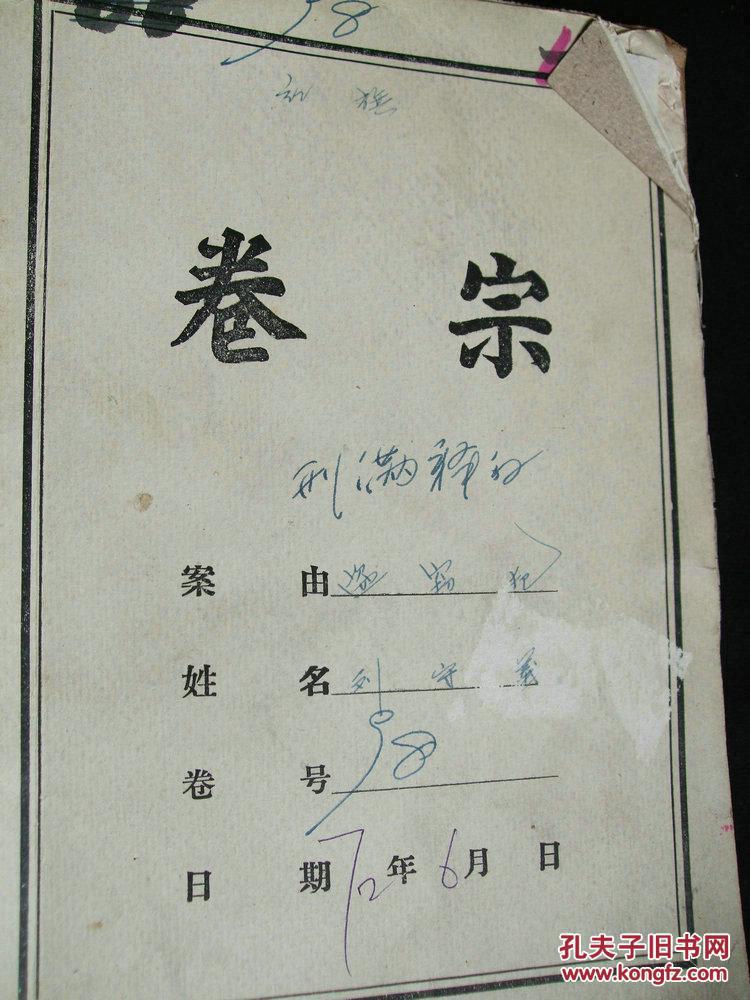 98
卷 宗
刑满释的
案 由 盗窃犯
姓 名 刘守义
卷 号 98
日 期 72年6月 日
孔夫子旧书网
www.kongfz.com